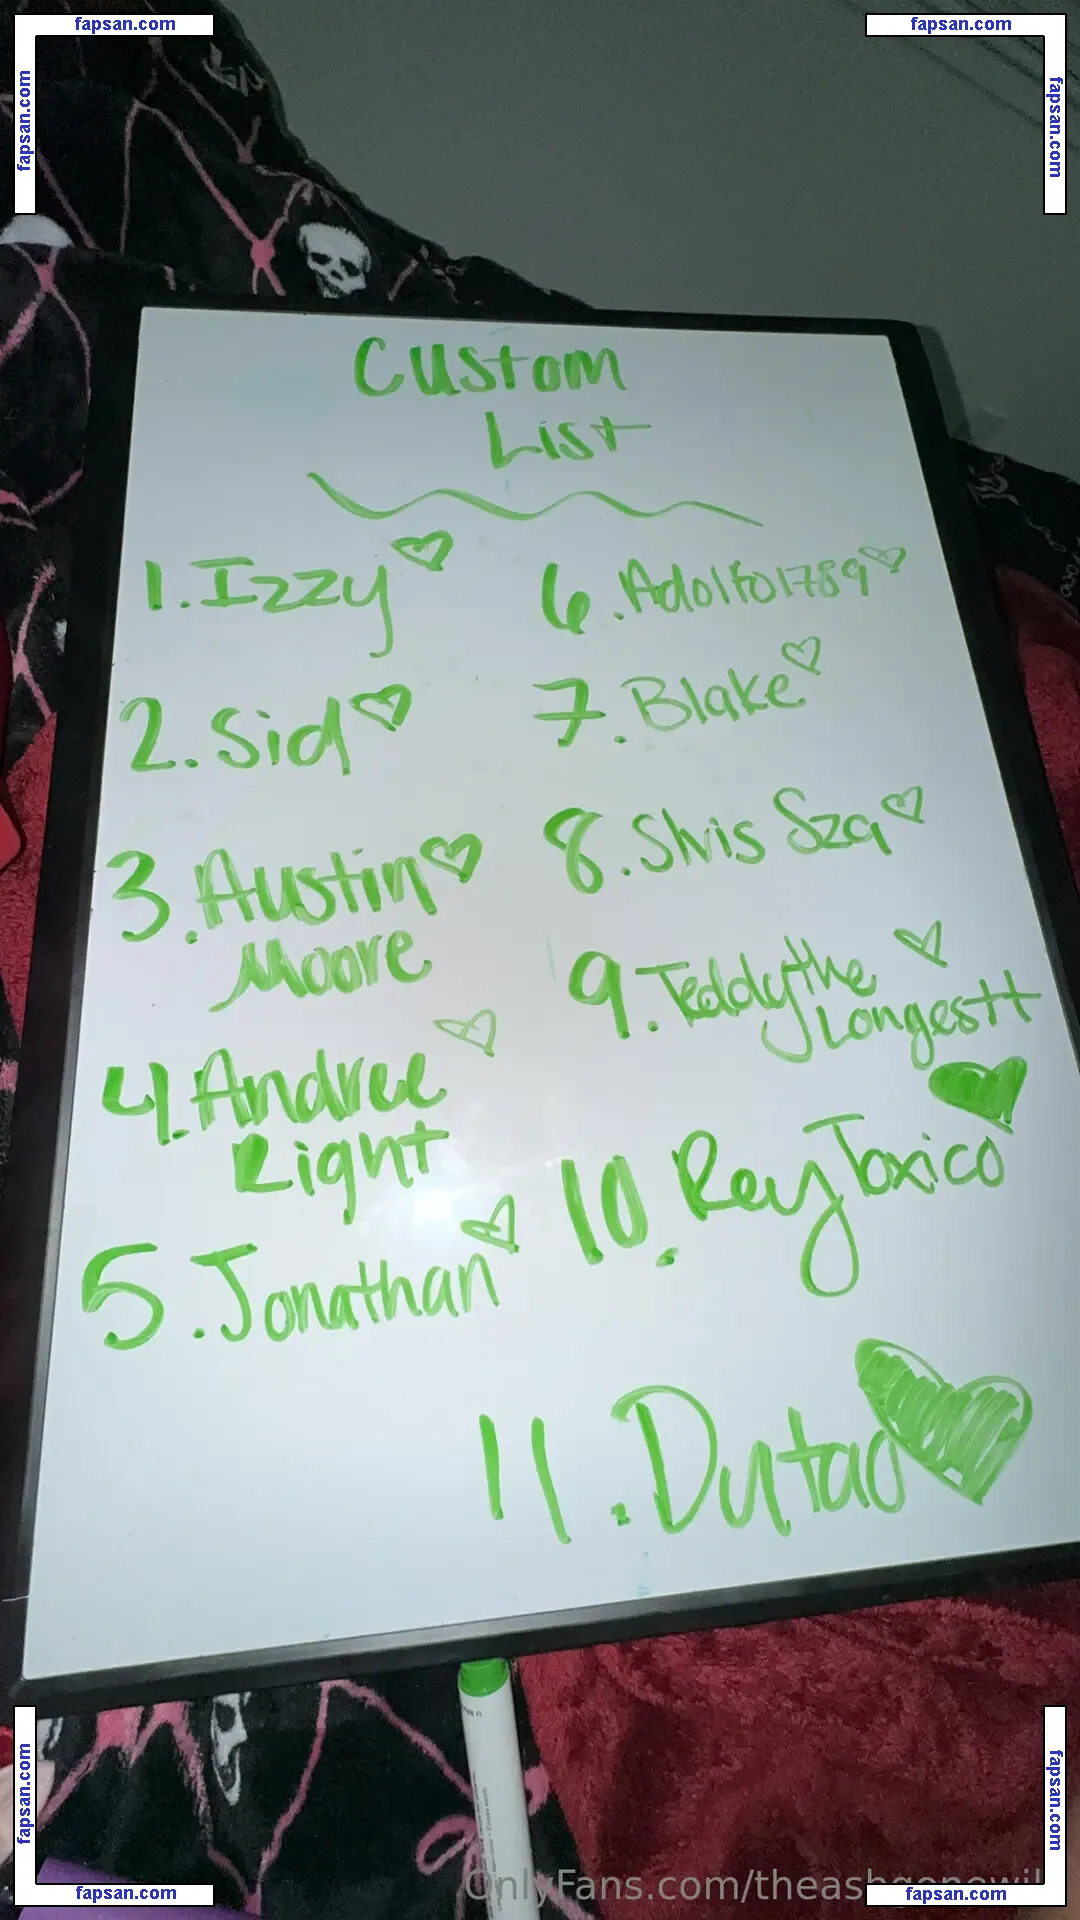 fapsan.com
fapsan.com
fapsan.com
fapsan.com
Custom
List
1. Izzy
2. Sid
3. Austin
Moore
4. Andree
Right
5. Jonathan
6. Adolfo1789
7. Blake
8. Slvis Sza
9. Teddythe
Longestt
10. Rey Toxico
11. Dutao
OnlyFans.com/theashgonewil
fapsan.com
fapsan.com
fapsan.com
fapsan.com